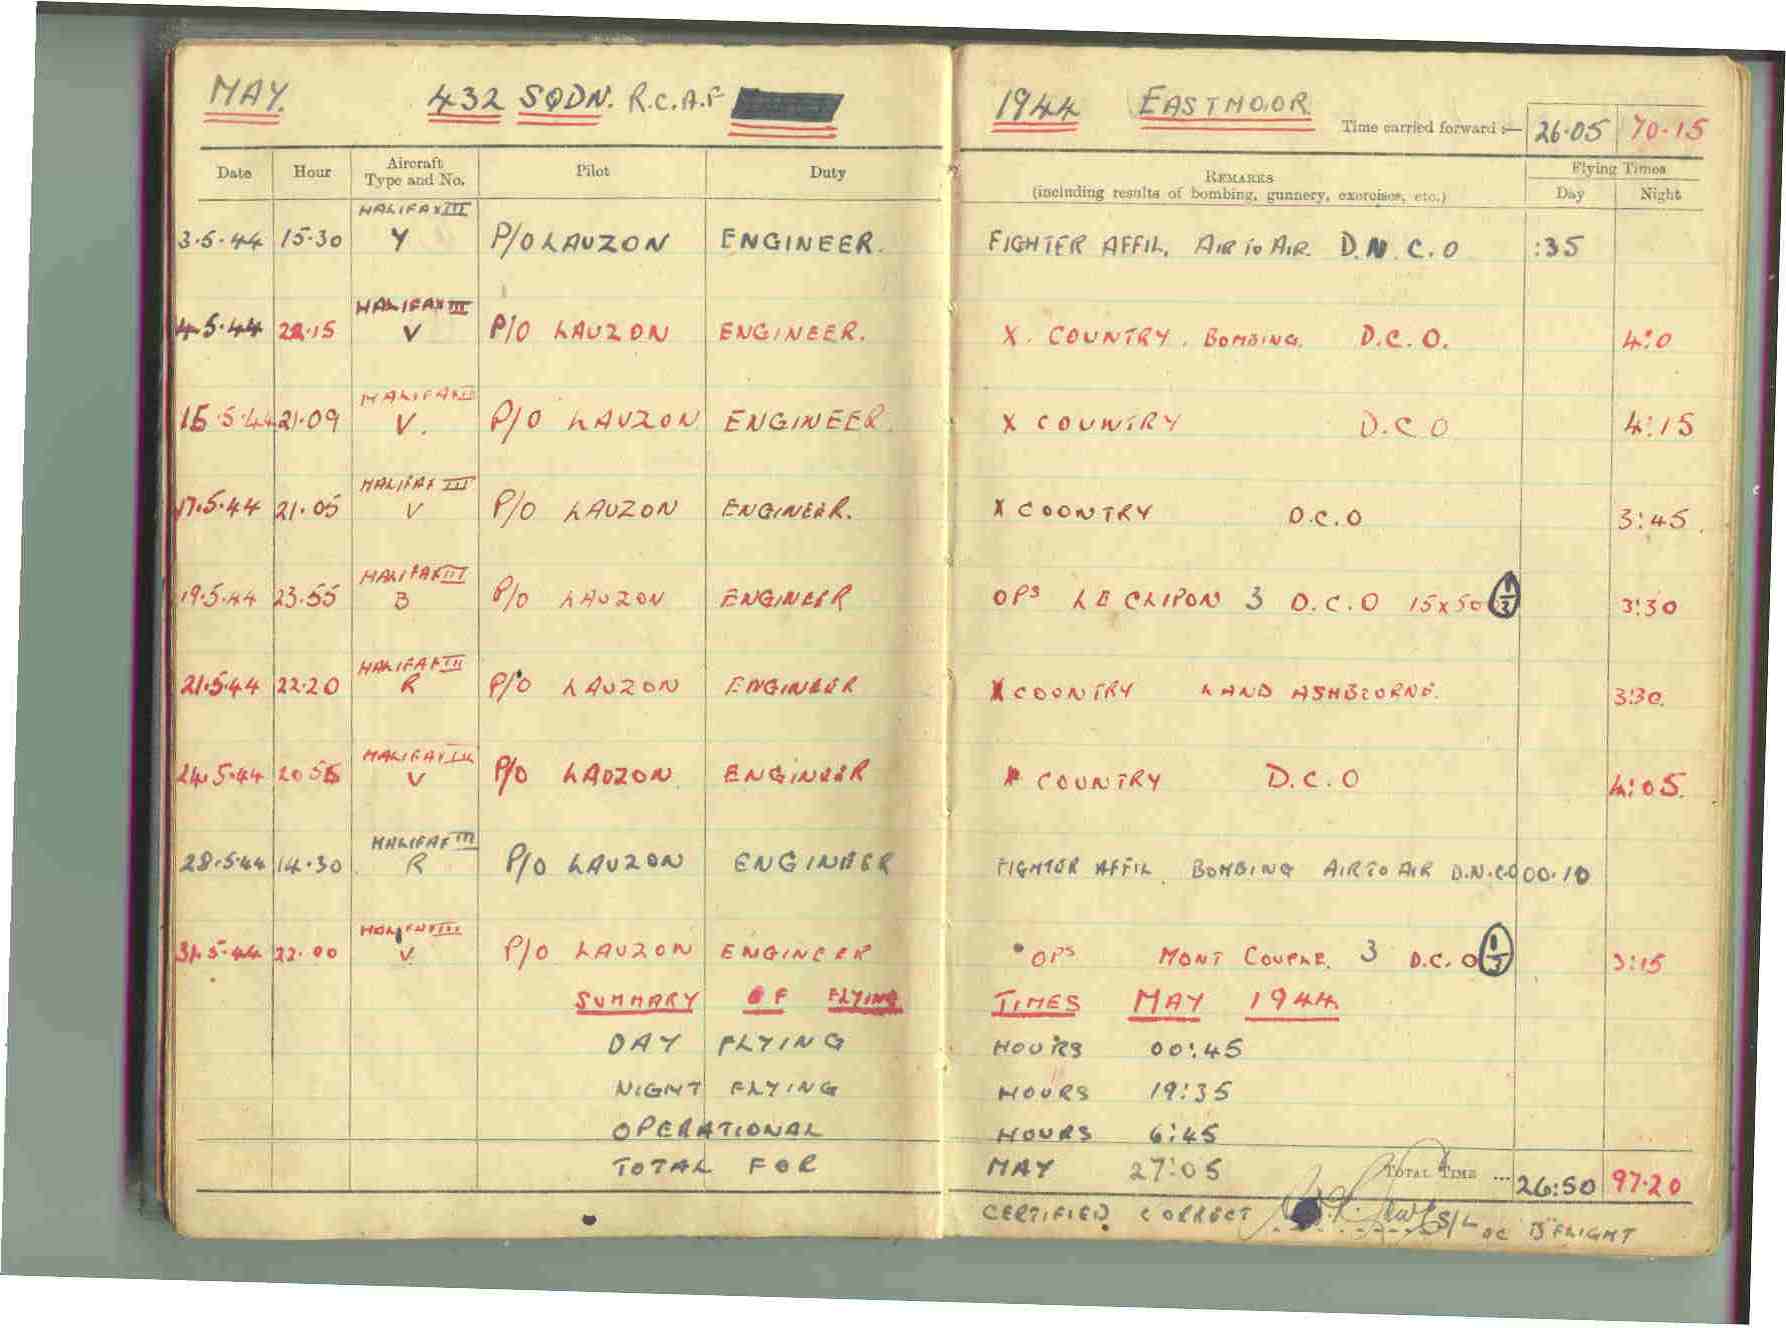 MAY. 432 SQDN. R.C.A.F 1944 EASTMOOR
Time carried forward :— 26·05 70·15
Date Hour Aircraft Type and No. Pilot Duty REMARKS (including results of bombing, gunnery, exercises, etc.) Flying Times Day Night
HALIFAX III
3·5·44 15·30 Y P/O LAUZON ENGINEER. FIGHTER AFFIL, AIR TO AIR. D.N.C.O :35
HALIFAX III
4·5·44 22·15 V P/O LAUZON ENGINEER. X. COUNTRY. BOMBING. D.C.O. 4:0
HALIFAX III
15·5·44 21·09 V. P/O LAUZON ENGINEER. X COUNTRY D.C.O 4:15
HALIFAX III
17·5·44 21·05 V P/O LAUZON ENGINEER. X COUNTRY D.C.O 3:45.
HALIFAX III
19·5·44 23·55 B P/O LAUZON ENGINEER OPS LE CLIPON 3 D.C.O 15x500 1/3 3:30
HALIFAX III
21·5·44 22·20 R P/O LAUZON ENGINEER X COUNTRY LAND ASHBOURNE. 3:30.
HALIFAX III
24·5·44 20 55 V P/O LAUZON. ENGINEER X COUNTRY D.C.O 4:05.
HALIFAX III
28·5·44 14·30 R P/O LAUZON ENGINEER FIGHTER AFFIL. BOMBING AIR TO AIR D.N.C.O 00·10
HALIFAX III
31·5·44 22·00 V. P/O LAUZON ENGINEER OPS MONT COUPLE. 3 D.C.O 1/3 3:15
SUMMARY OF FLYING TIMES MAY 1944
DAY FLYING HOURS 00:45
NIGHT FLYING HOURS 19:35
OPERATIONAL HOURS 6:45
TOTAL FOR MAY 27:05 TOTAL TIME ... 26:50 97·20
CERTIFIED CORRECT S/L OC B FLIGHT